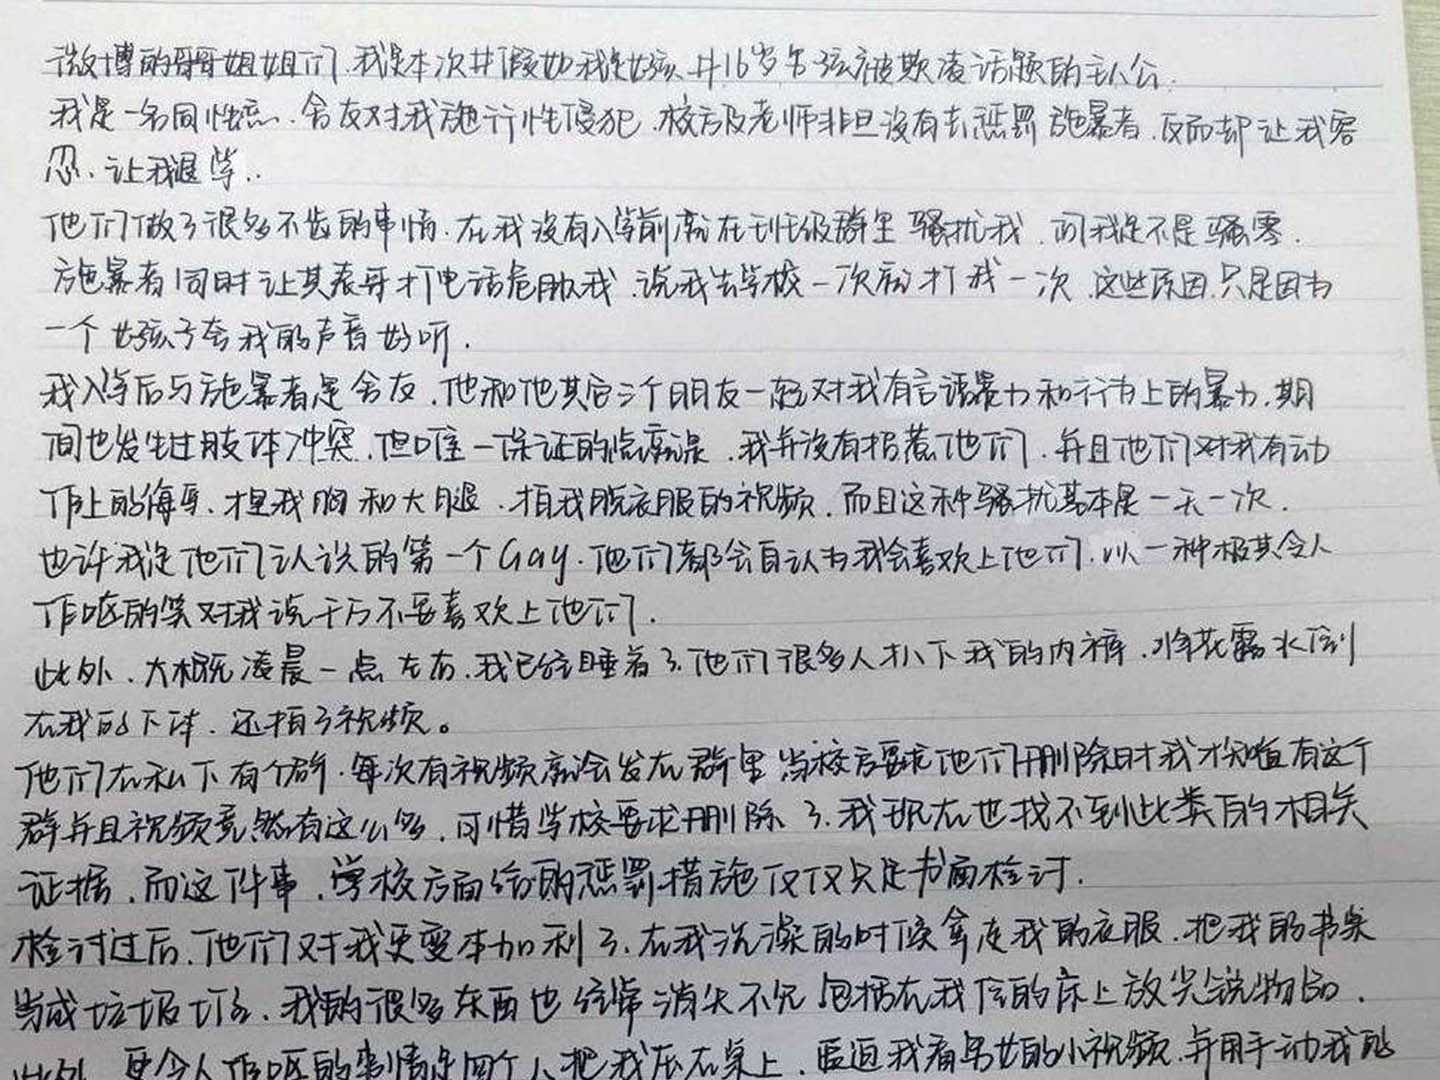 微博的哥哥姐姐们.我是本次#假如我是女孩#16岁男孩被欺凌话题的主人公.
我是一名同性恋.舍友对我施行性侵犯.校方及老师非但没有去惩罚施暴者.反而却让我容
忍.让我退学..
他们做了很多不齿的事情.在我没有入学前就在班级群里骚扰我.问我是不是骚零.
施暴者同时让其表哥打电话危胁我.说我去学校一次就打我一次.这些原因.只是因为
一个女孩子夸我的声音好听.
我入学后与施暴者是舍友.他和他其它三个朋友一起对我有言语暴力和行为上的暴力.期
间也发生过肢体冲突.但唯一保证的点就是.我并没有招惹他们.并且他们对我有动
作上的侮辱.摸我胸和大腿.拍我脱衣服的视频.而且这种骚扰基本是一天一次.
也许我是他们认识的第一个Gay.他们都会自认为我会喜欢上他们.以一种极其令人
作呕的笑对我说千万不要喜欢上他们.
此外.大概凌晨一点左右.我已经睡着了.他们很多人扒下我的内裤.将花露水倒
在我的下体.还拍了视频。
他们在私下有个群.每次有视频就会发在群里当校方要求他们删除时我才知道有这个
群并且视频竟然有这么多.可惜学校要求删除了.我现在也找不到此类的相关
证据.而这件事.学校方面给的惩罚措施仅仅只是书面检讨.
检讨过后.他们对我更变本加利了.在我洗澡的时候拿走我的衣服.把我的书桌
当成垃圾场.我的很多东西也经常消失不见包括在我住的床上放尖锐物品.
此外.更令人作呕的事情是四个人把我压在桌上.逼迫我看男女的小视频.并用手动我的